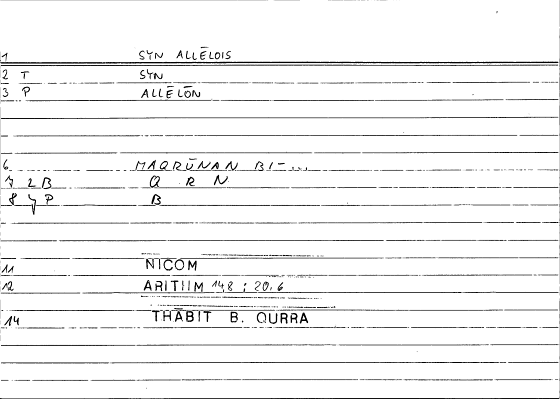 1 SYN ALLĒLOIS
2 T SYN
3 P ALLĒLŌN
6 MAQRŪNAN BI-...
7 2B Q R N
8 y P B
11 NICOM
12 ARITIIM 148 ; 20.6
14 THĀBIT B. QURRA